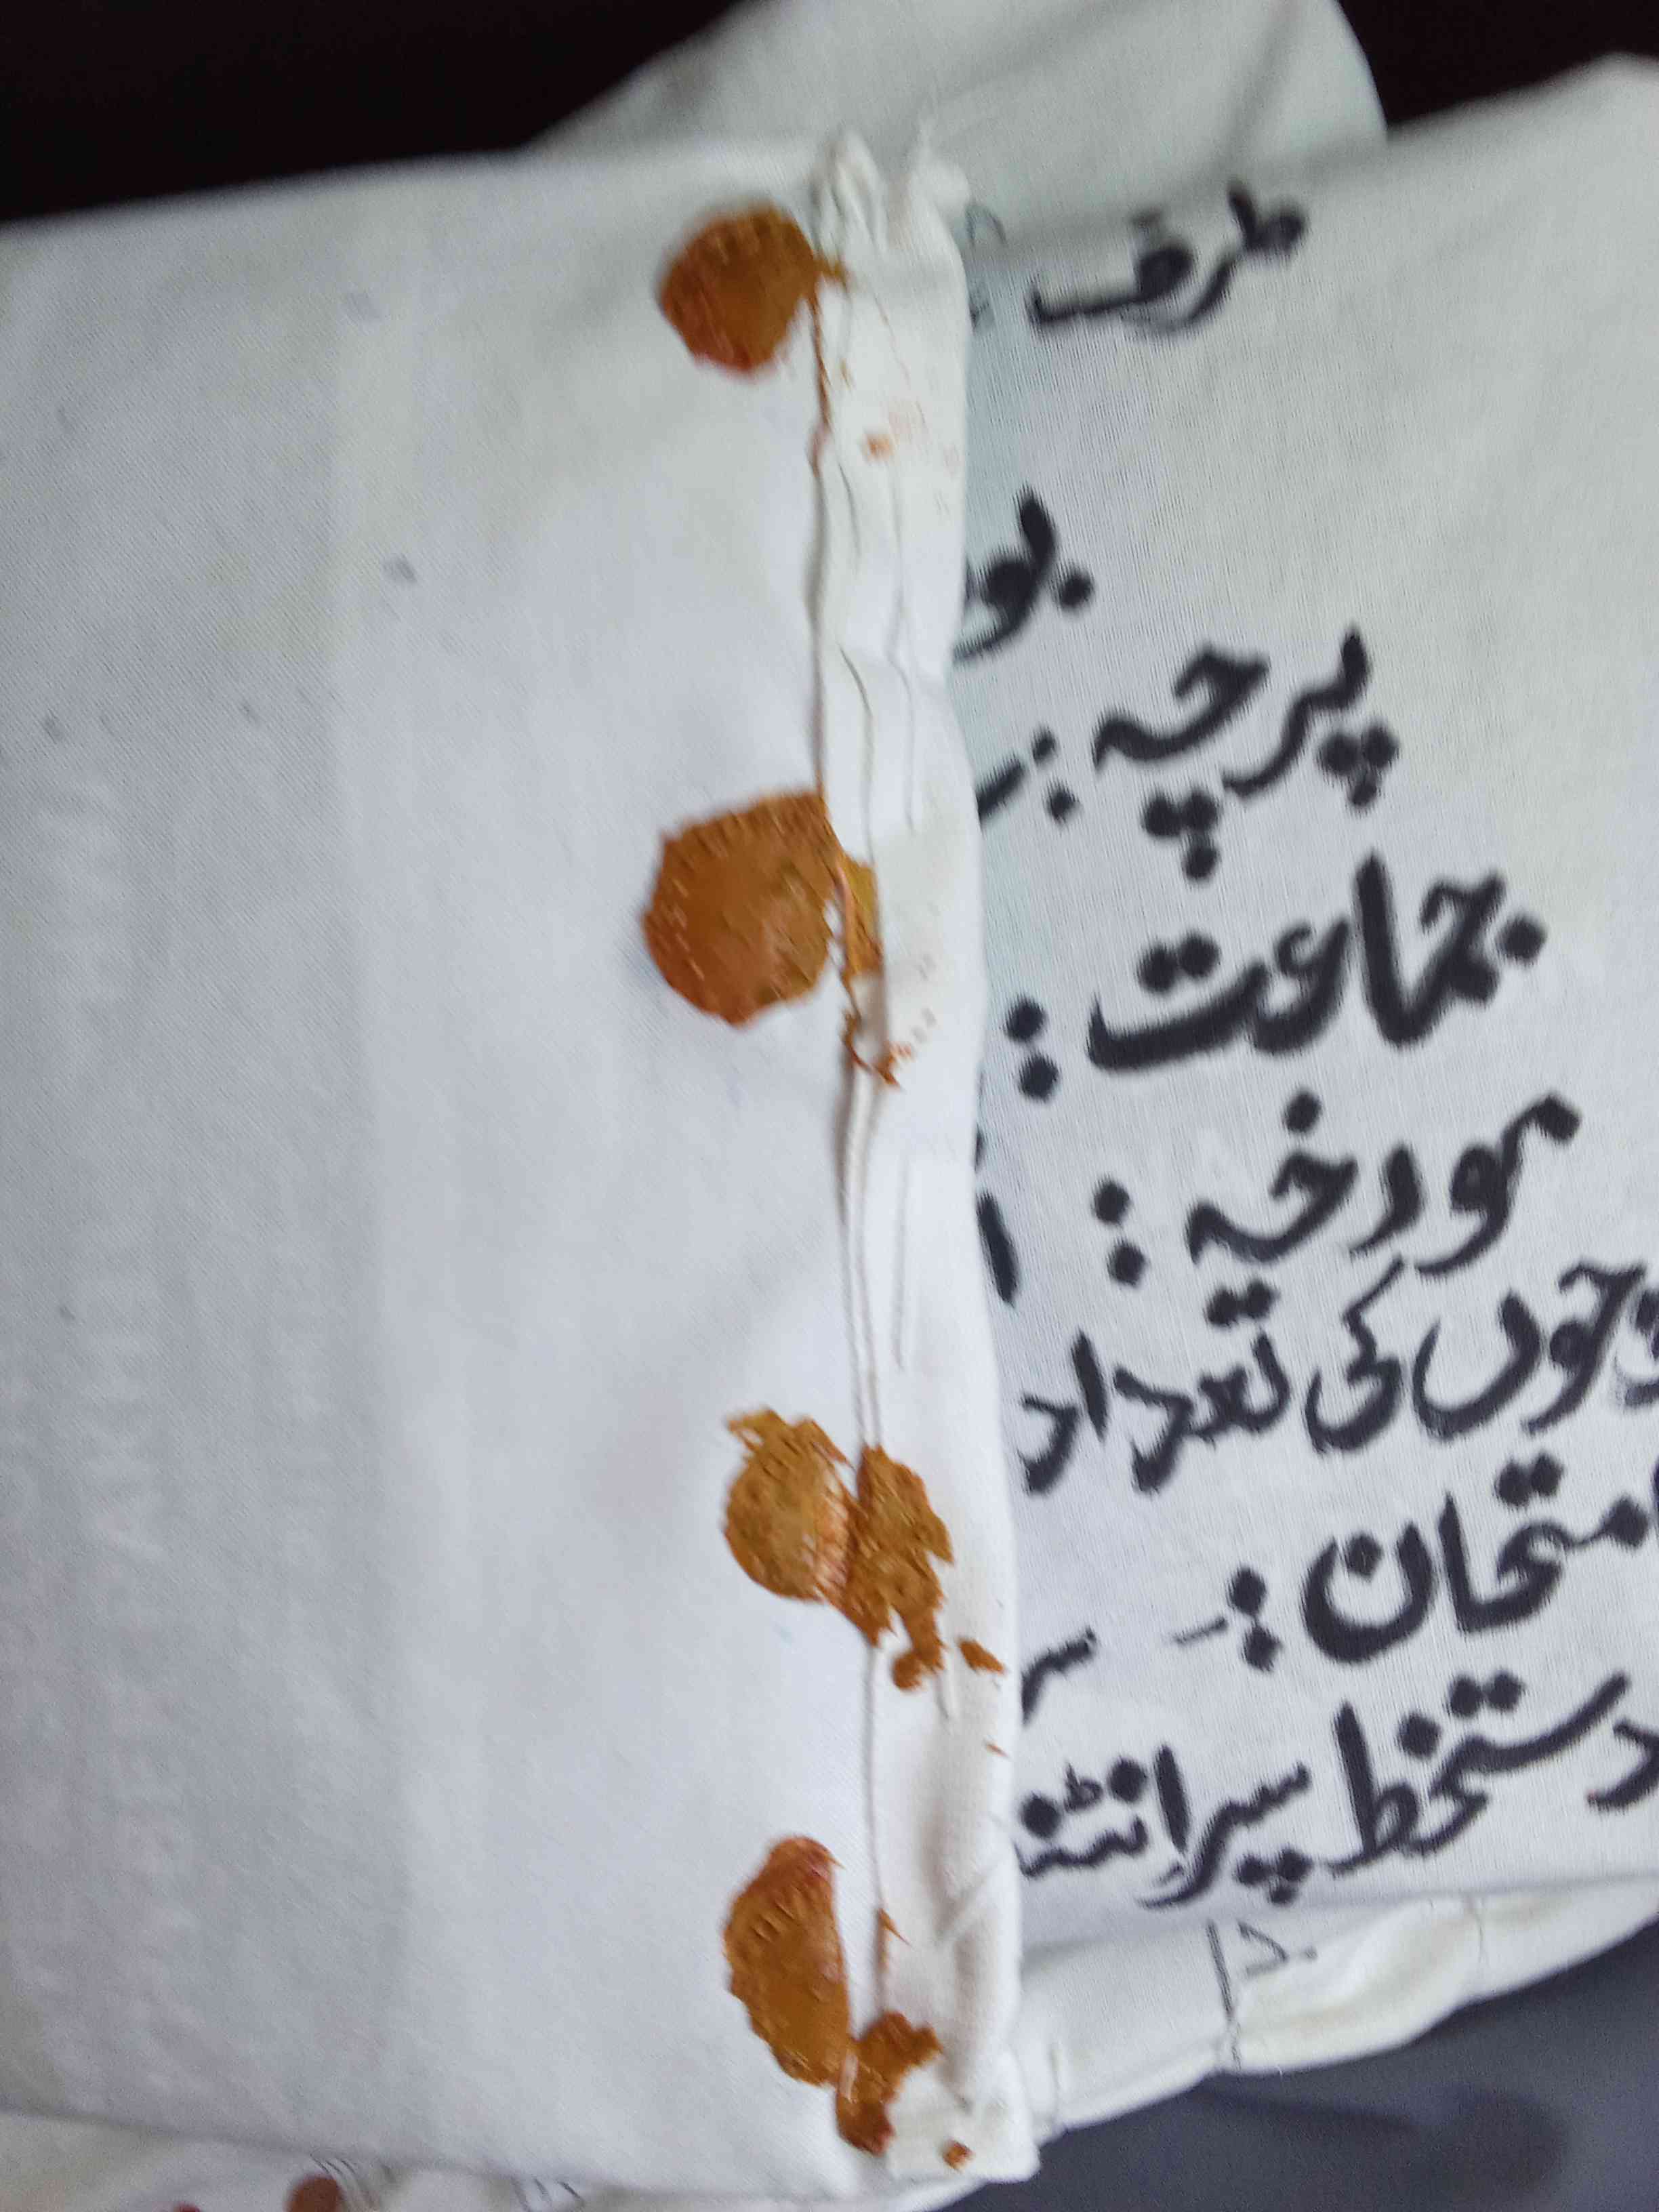 طرف
بور
پرچہ :
جماعت :
مورخہ :
پرچوں کی تعداد
امتحان :-
دستخط سپرانٹنڈ